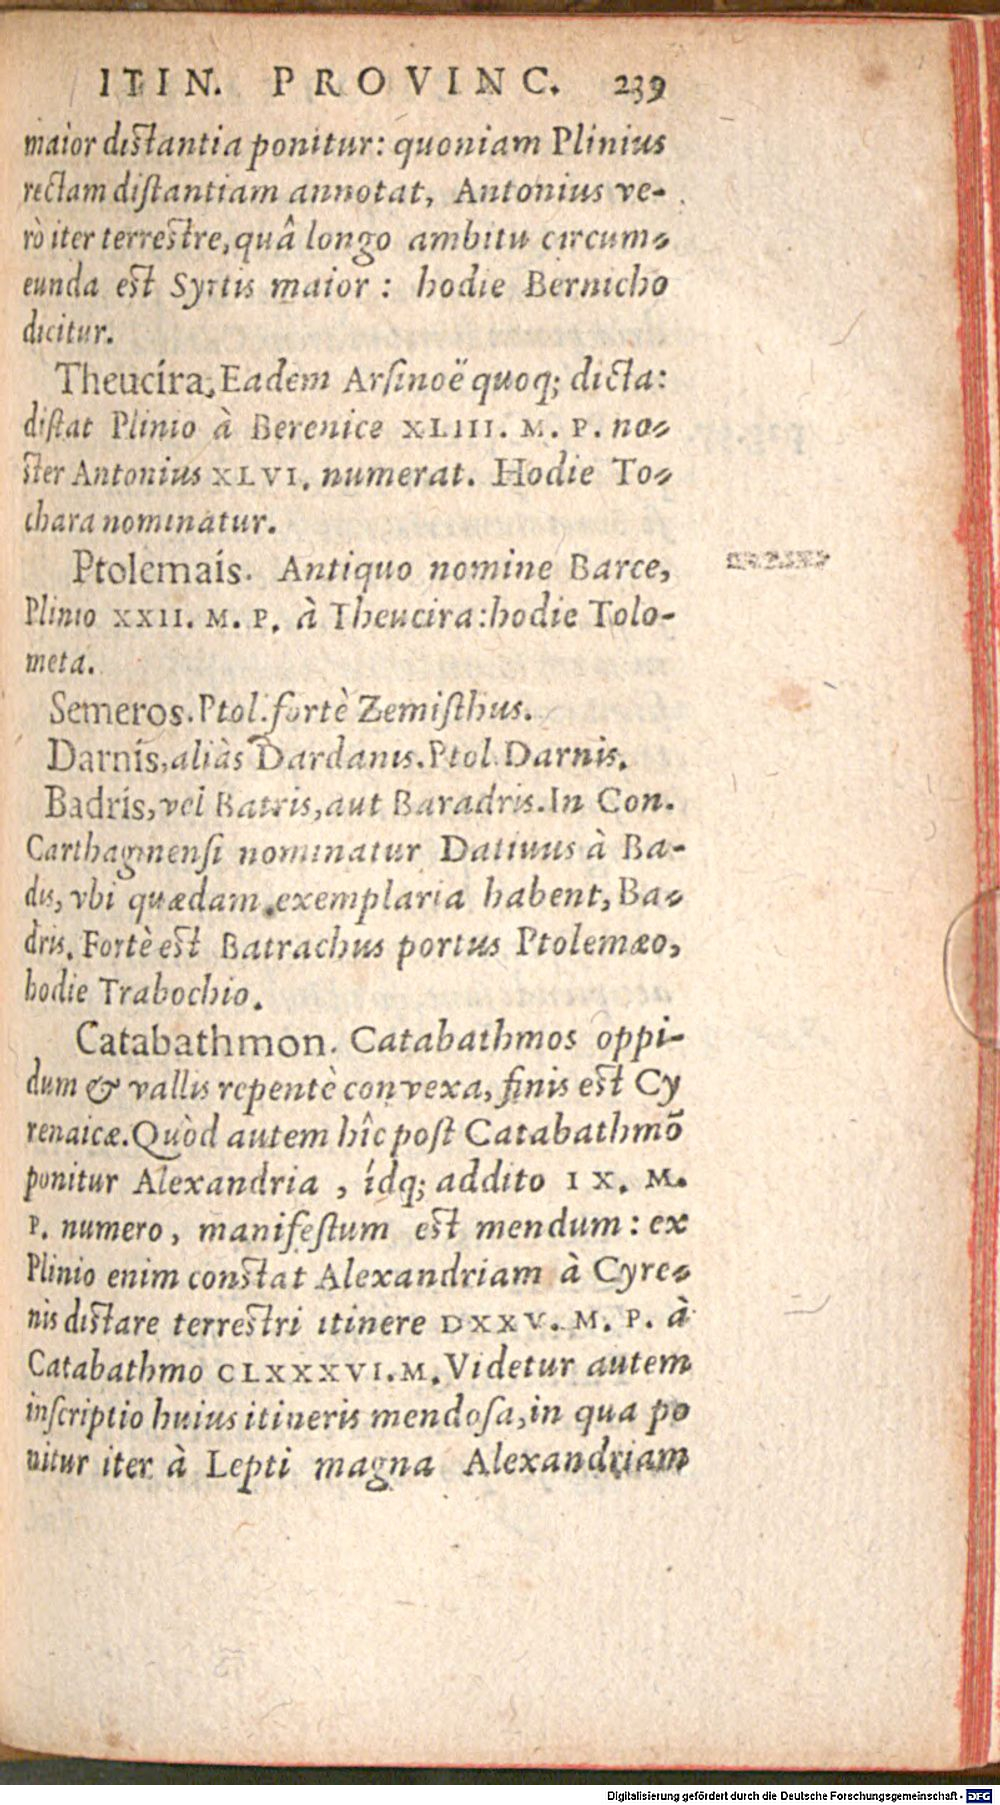 ITIN. PROVINC. 239
maior distantia ponitur: quoniam Plinius
rectam distantiam annotat, Antonius ve-
rò iter terrestre, quâ longo ambitu circum-
eunda est Syrtis maior: hodie Bernicho
dicitur.
Theucira; Eadem Arsinoë quoq; dicta:
distat Plinio à Berenice XLIII. M. P. no-
ster Antonius XLVI. numerat. Hodie To-
chara nominatur.
Ptolemais. Antiquo nomine Barce,
Plinio XXII. M. P. à Theucira: hodie Tolo-
meta.
Semeros. Ptol. fortè Zemisthus.
Darnis, aliàs Dardanis. Ptol. Darnis.
Badris, vel Batris, aut Baradris. In Con.
Carthaginensi nominatur Datiuus à Ba-
dis, vbi quædam exemplaria habent, Ba-
dris. Fortè est Batrachus portus Ptolemæo,
hodie Trabochio.
Catabathmon. Catabathmos oppi-
dum & vallis repentè convexa, finis est Cy
renaicæ. Quòd autem hîc post Catabathmõ
ponitur Alexandria, idq; addito IX. M.
P. numero, manifestum est mendum: ex
Plinio enim constat Alexandriam à Cyre-
nis distare terrestri itinere DXXV. M. P. à
Catabathmo CLXXXVI. M. Videtur autem
inscriptio huius itineris mendosa, in qua po
nitur iter à Lepti magna Alexandriam
Digitalisierung gefördert durch die Deutsche Forschungsgemeinschaft - DFG